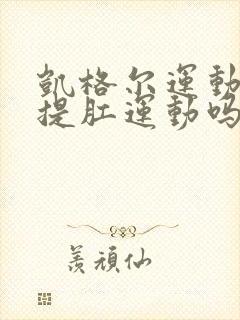 凱格尔運動
提肛運動吗
羡頑仙